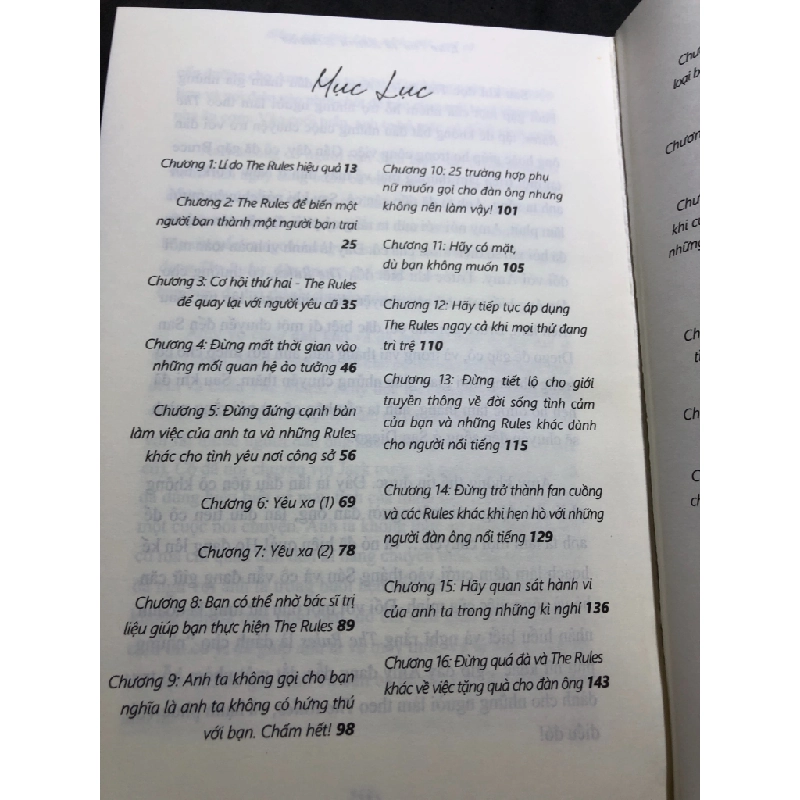 Mục Lục
Chương 1: Lí do The Rules hiệu quả 13
Chương 2: The Rules để biến một
người bạn thành một người bạn trai
25
Chương 3: Cơ hội thứ hai - The Rules
để quay lại với người yêu cũ 35
Chương 4: Đừng mất thời gian vào
những mối quan hệ ảo tưởng 46
Chương 5: Đừng đứng cạnh bàn
làm việc của anh ta và những Rules
khác cho tình yêu nơi công sở 56
Chương 6: Yêu xa (1) 69
Chương 7: Yêu xa (2) 78
Chương 8: Bạn có thể nhờ bác sĩ trị
liệu giúp bạn thực hiện The Rules 89
Chương 9: Anh ta không gọi cho bạn
nghĩa là anh ta không có hứng thú
với bạn. Chấm hết! 98
Chương 10: 25 trường hợp phụ
nữ muốn gọi cho đàn ông nhưng
không nên làm vậy! 101
Chương 11: Hãy có mặt,
dù bạn không muốn 105
Chương 12: Hãy tiếp tục áp dụng
The Rules ngay cả khi mọi thứ đang
trì trệ 110
Chương 13: Đừng tiết lộ cho giới
truyền thông về đời sống tình cảm
của bạn và những Rules khác dành
cho người nổi tiếng 115
Chương 14: Đừng trở thành fan cuồng
và các Rules khác khi hẹn hò với những
người đàn ông nổi tiếng 129
Chương 15: Hãy quan sát hành vi
của anh ta trong những kì nghỉ 136
Chương 16: Đừng quá đà và The Rules
khác về việc tặng quà cho đàn ông 143